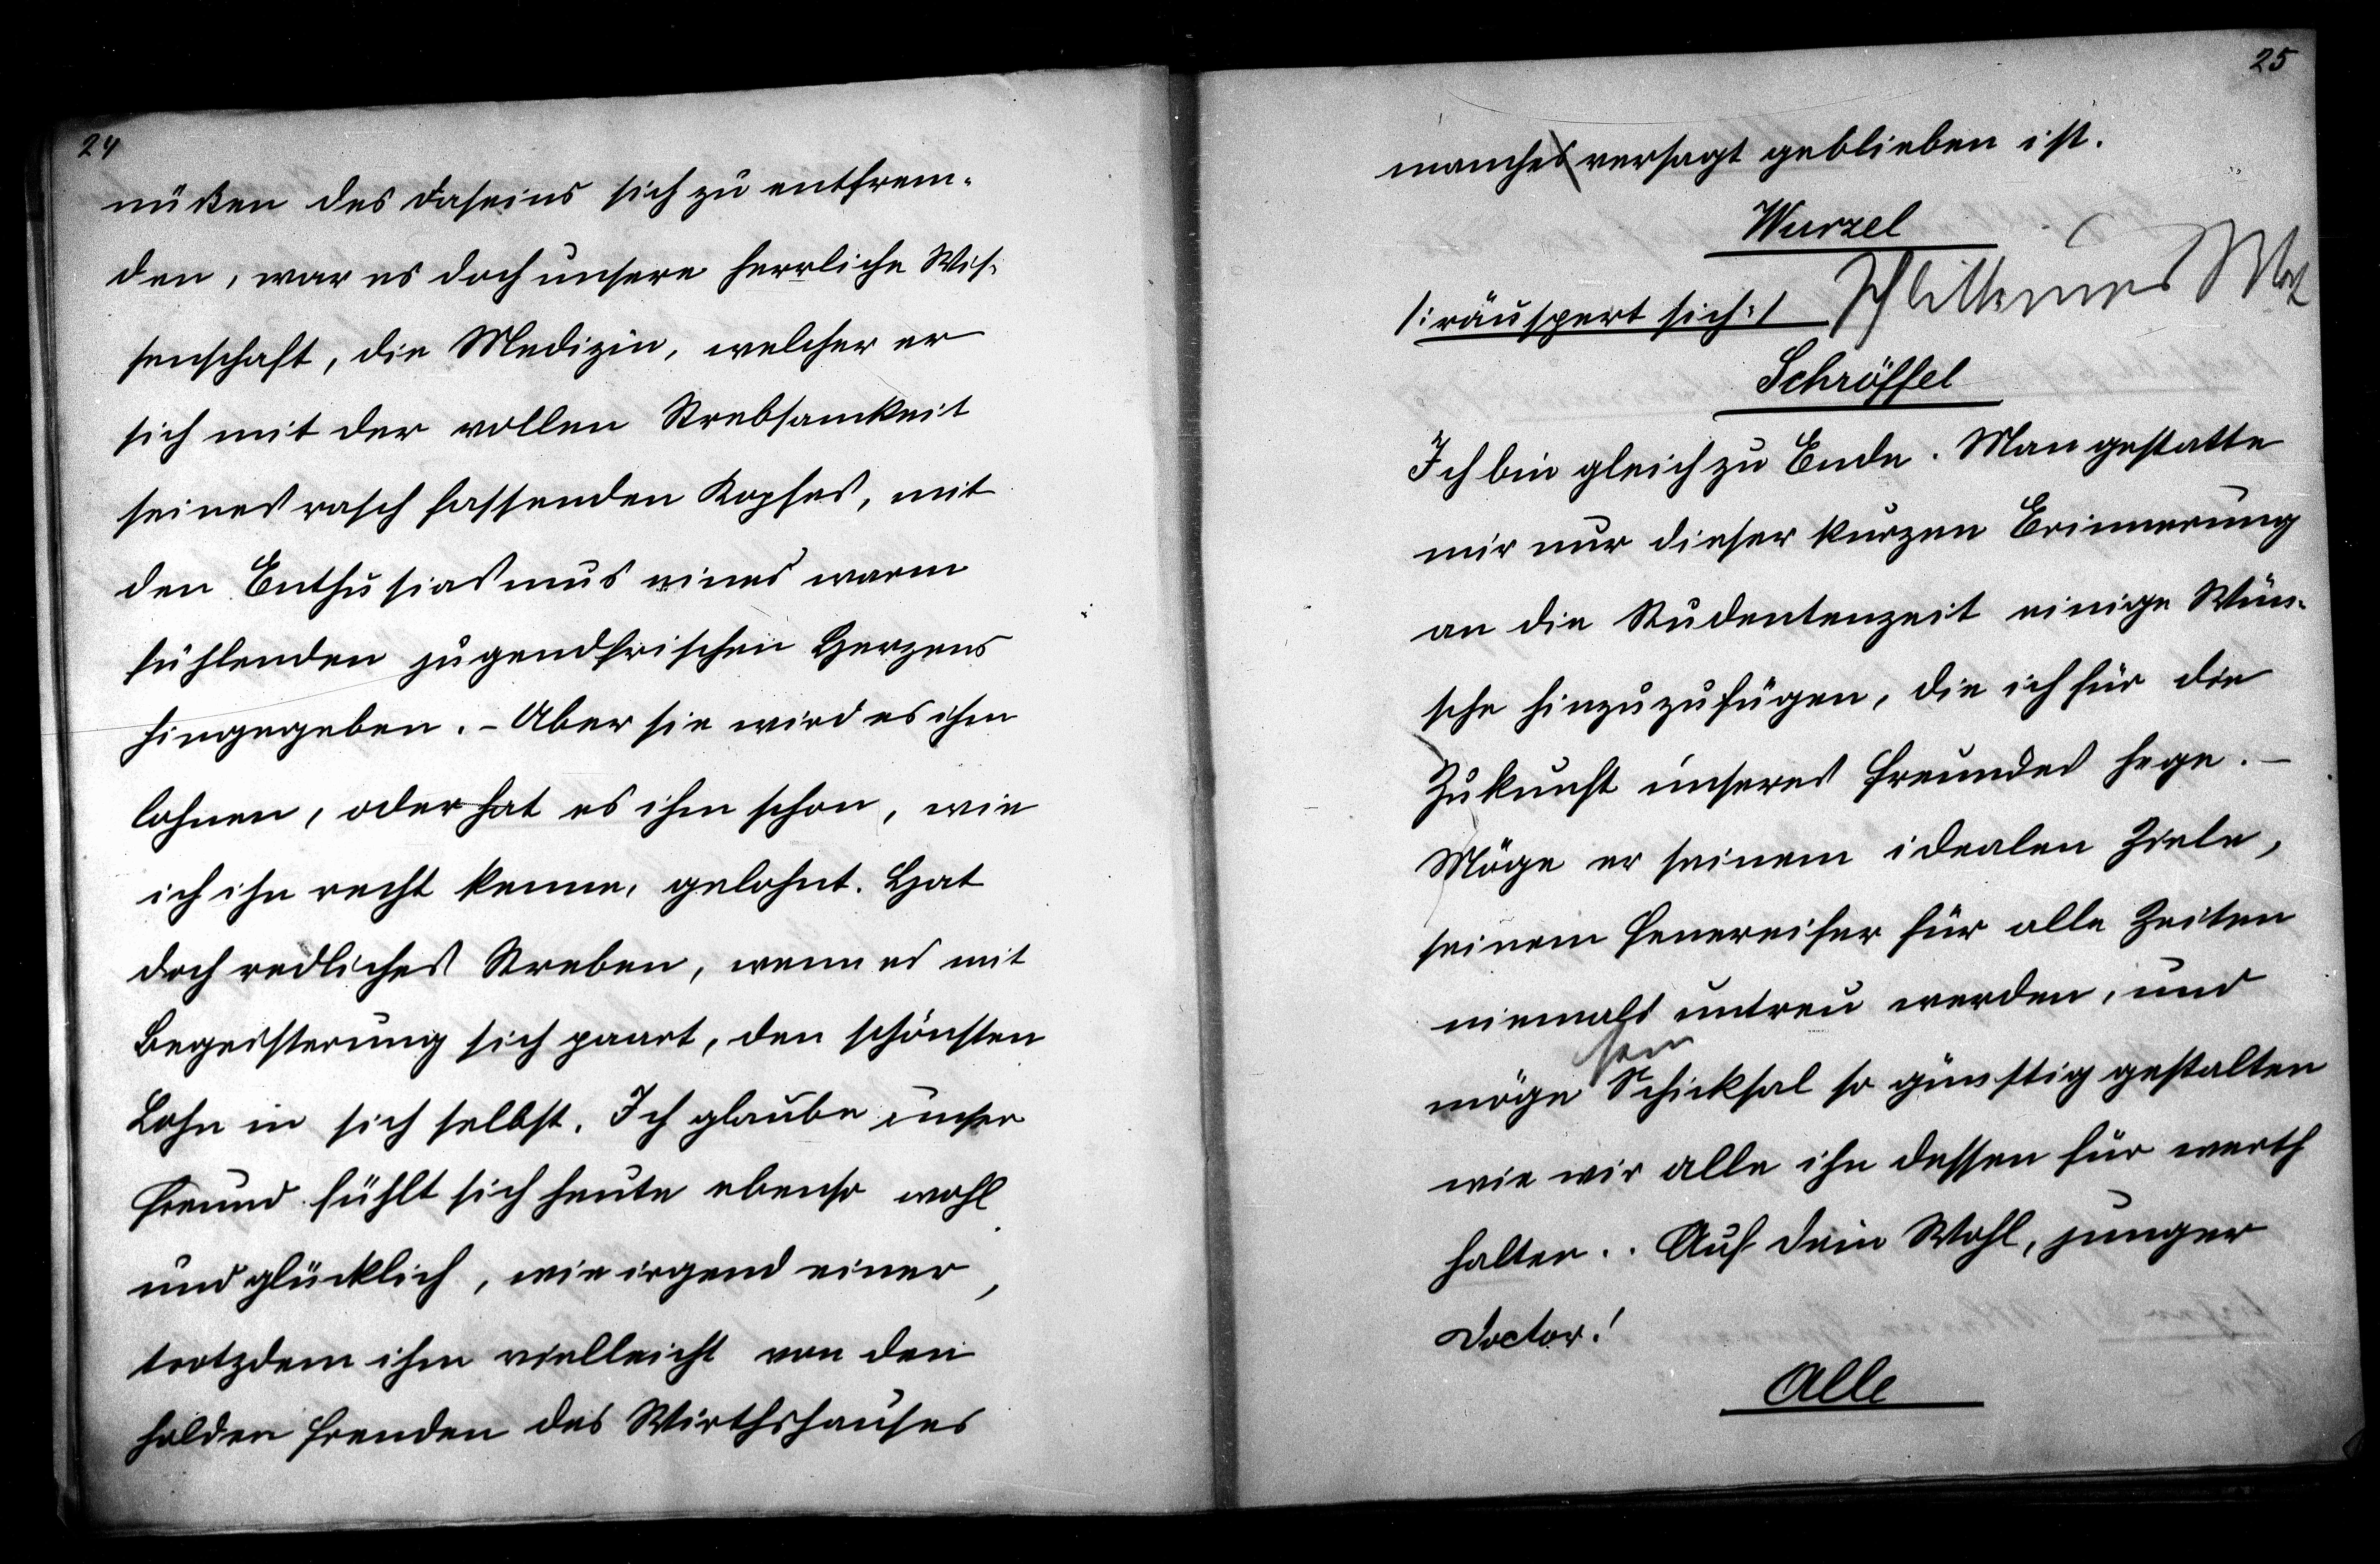 24
nüßen des Daseins sich zu entfrem-
den, war es doch unsere herrliche Wis-
senschaft, die Medizin, welcher er
sich mit der vollen Strebsamkeit
seines rasch fassenden Kopfes, mit
den Enthusiasmus eines warm
fühlenden jugendfrischen Herzens
hingegeben. - Aber sie wird es ihm
lohnen, oder hat es ihm schon, wie
ich ihn recht kenne, gelohnt. Hat
doch redliches Streben, wenn es mit
Begeisterung sich paart, den schönsten
Lohn in sich selbst. Ich glaube unser
Freund fühlt sich heute ebenso wohl
und glücklich, wie irgend einer,
trotzdem ihm vielleicht von den
holden Freuden des Wirthshauses
25
manches versagt geblieben ist.
Wurzel
/: räuspert sich :/
Schröffel
Ich bin gleich zu Ende. Man gestatte
mir nur dieser kurzen Erinnerung
an die Studentenzeit einige Wün-
sche hinzuzufügen, die ich für die
Zukunft unseres Freundes hege. -
Möge er seinem idealen Ziele,
seinem Feuereifer für alle Zeiten
niemals untreu werden, und
möge sein Schicksal so günstig gestalten
wie wir alle ihn dessen für werth
halten.. Auf dein Wohl, junger
Doctor!
Alle